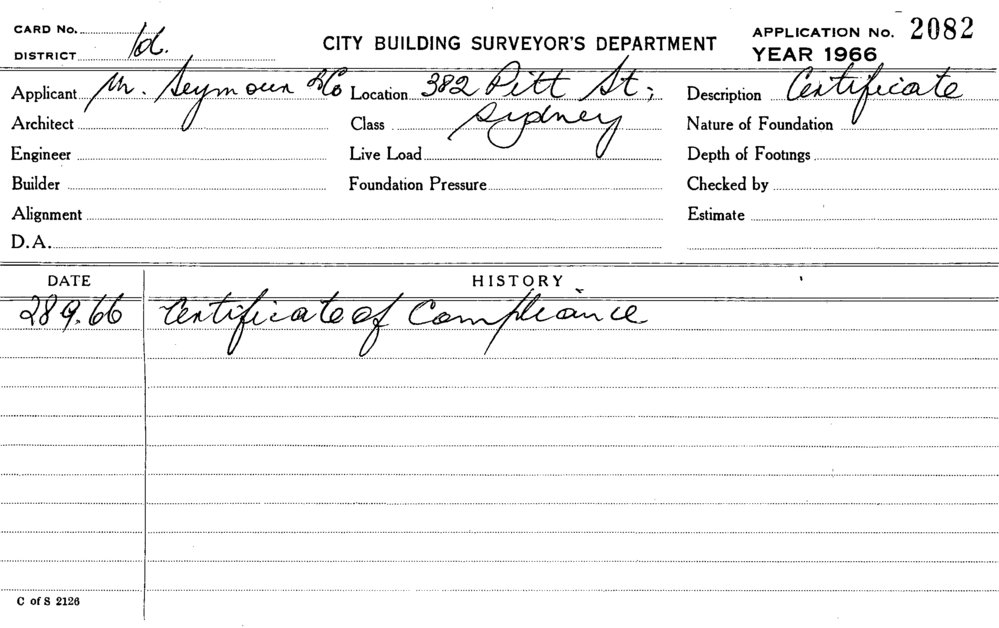 CARD No.
DISTRICT
CITY BUILDING SURVEYOR'S DEPARTMENT
APPLICATION No. 2082
YEAR 1966
Applicant M. Seymour & Co Location 382 Pitt St; Description Certificate
Architect Class Sydney Nature of Foundation
Engineer Live Load Depth of Footings
Builder Foundation Pressure Checked by
Alignment Estimate
D.A.
DATE HISTORY
28 9.66 Certificate of Compliance
C of S 2126